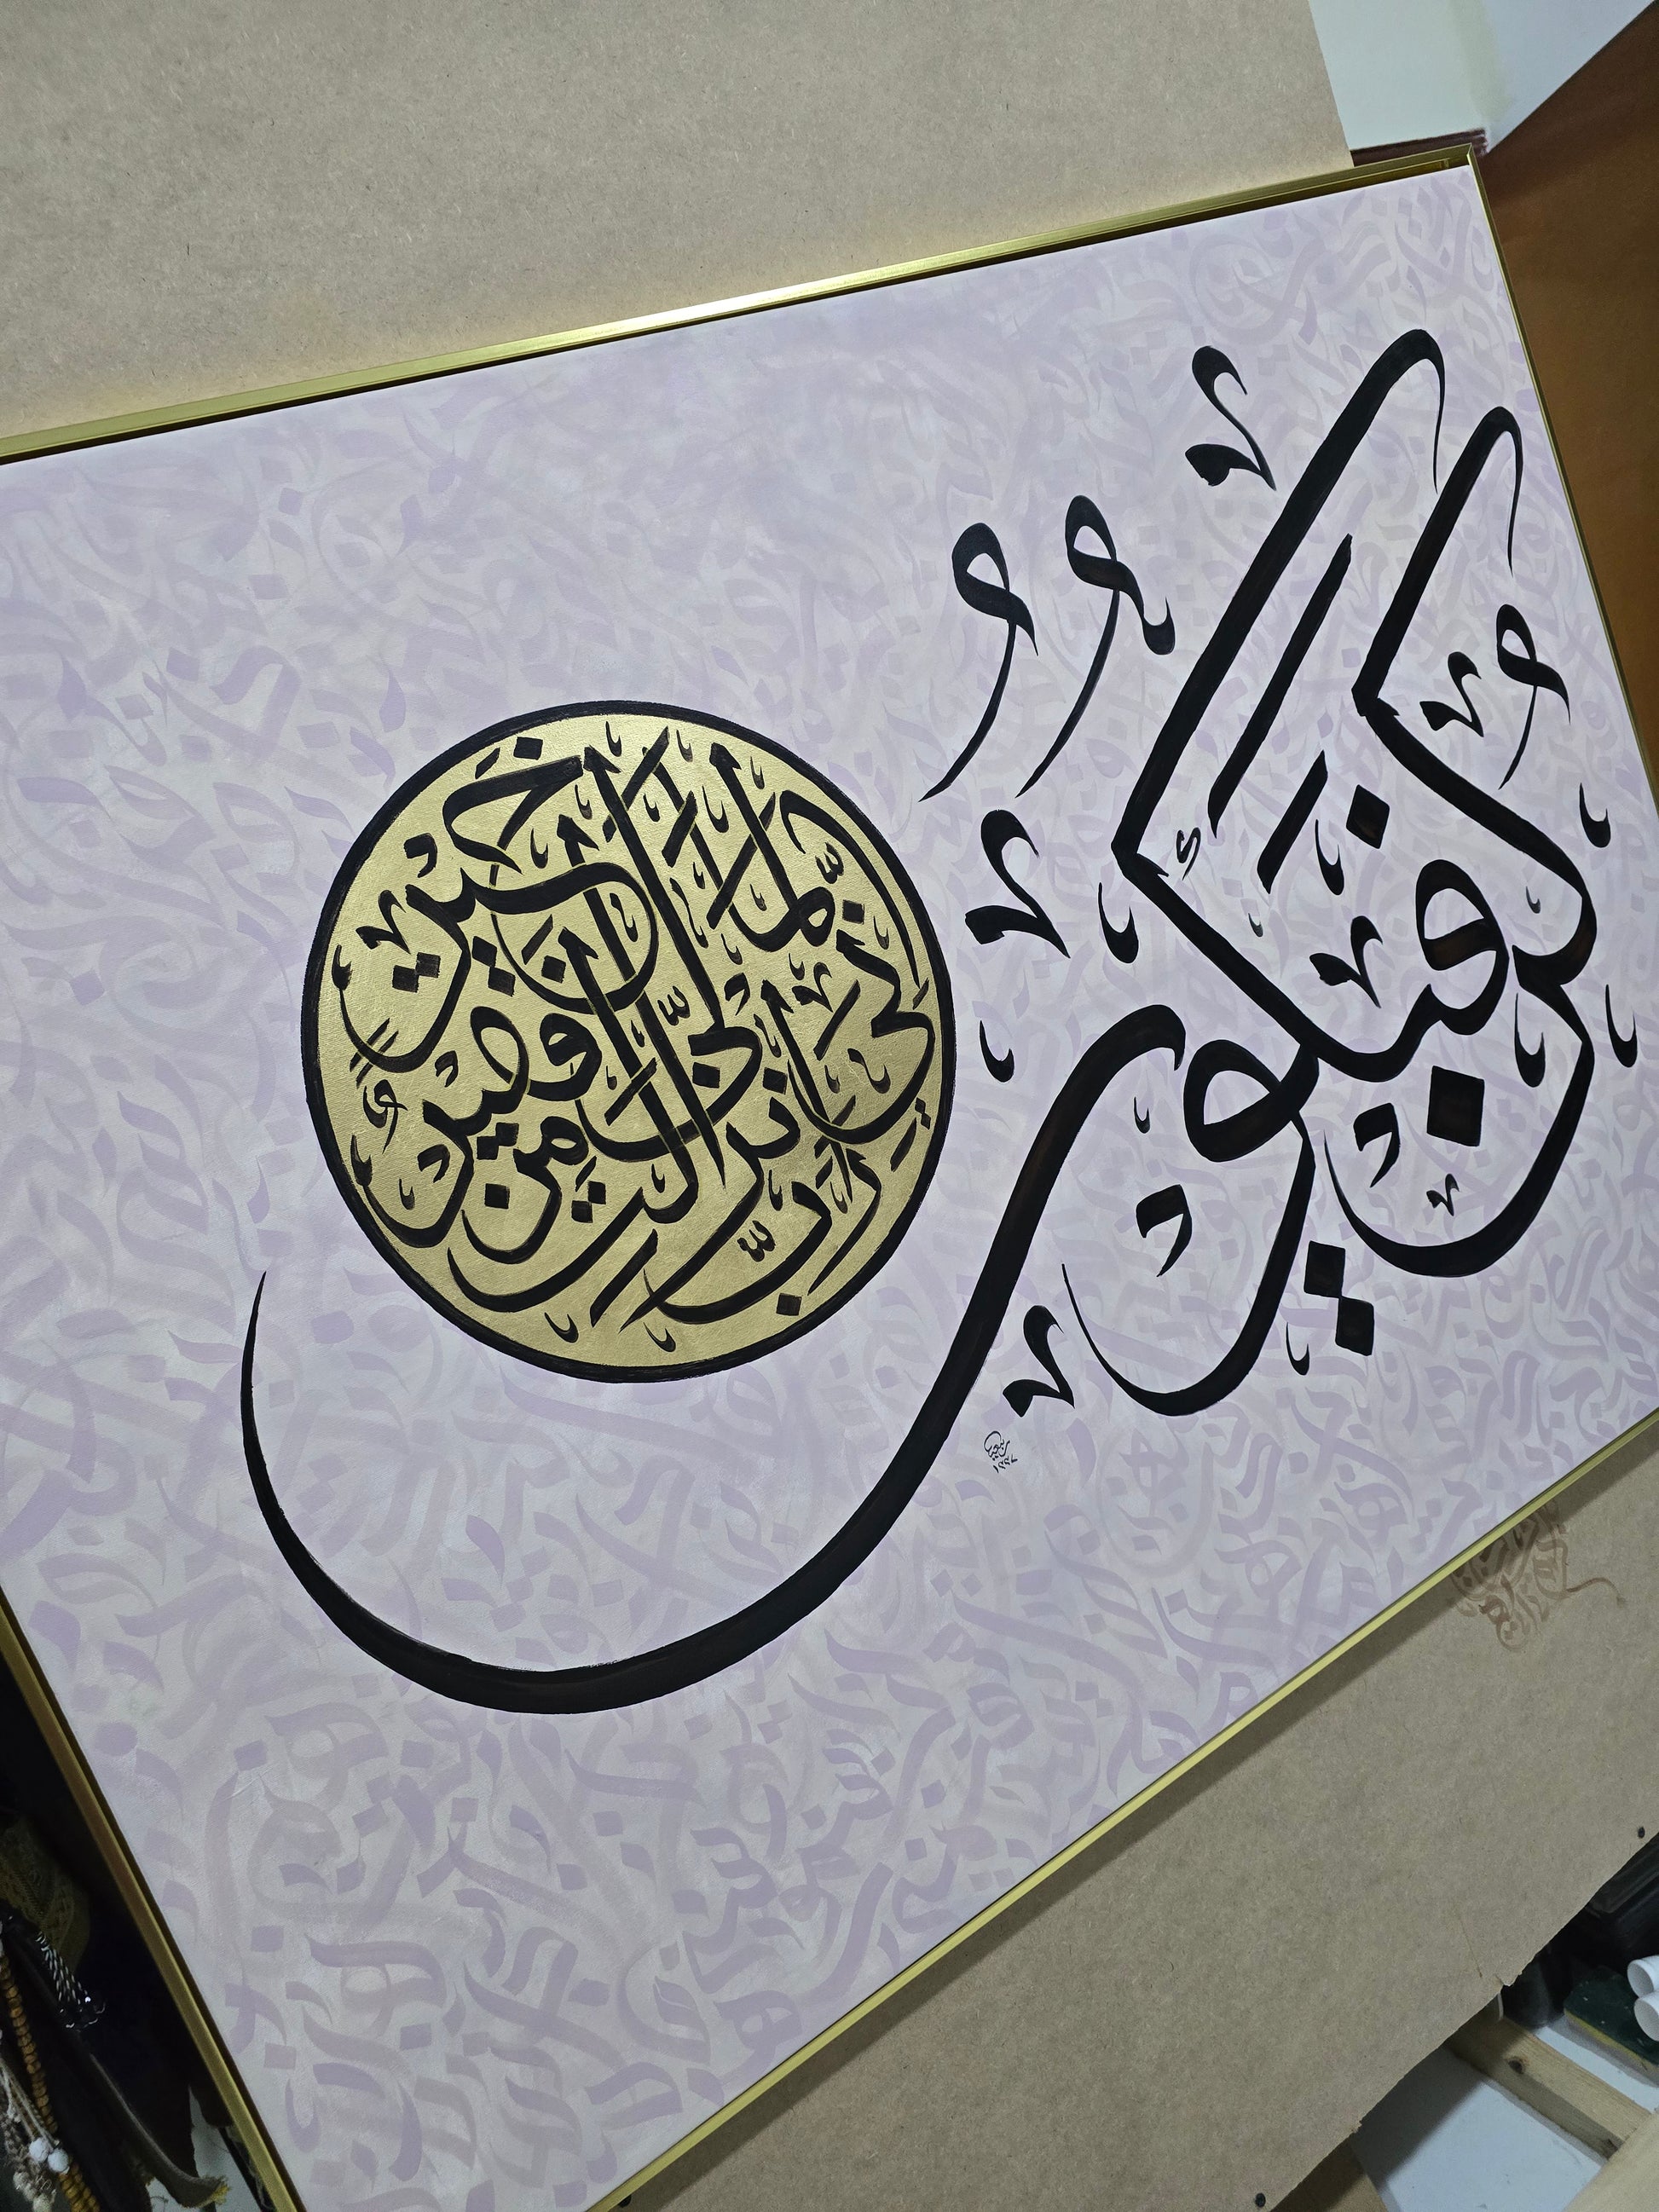 كُنْ فَيَكُونُ
رَبِّ إِنِّي لِمَا أَنزَلْتَ إِلَيَّ مِنْ خَيْرٍ فَقِيرٌ